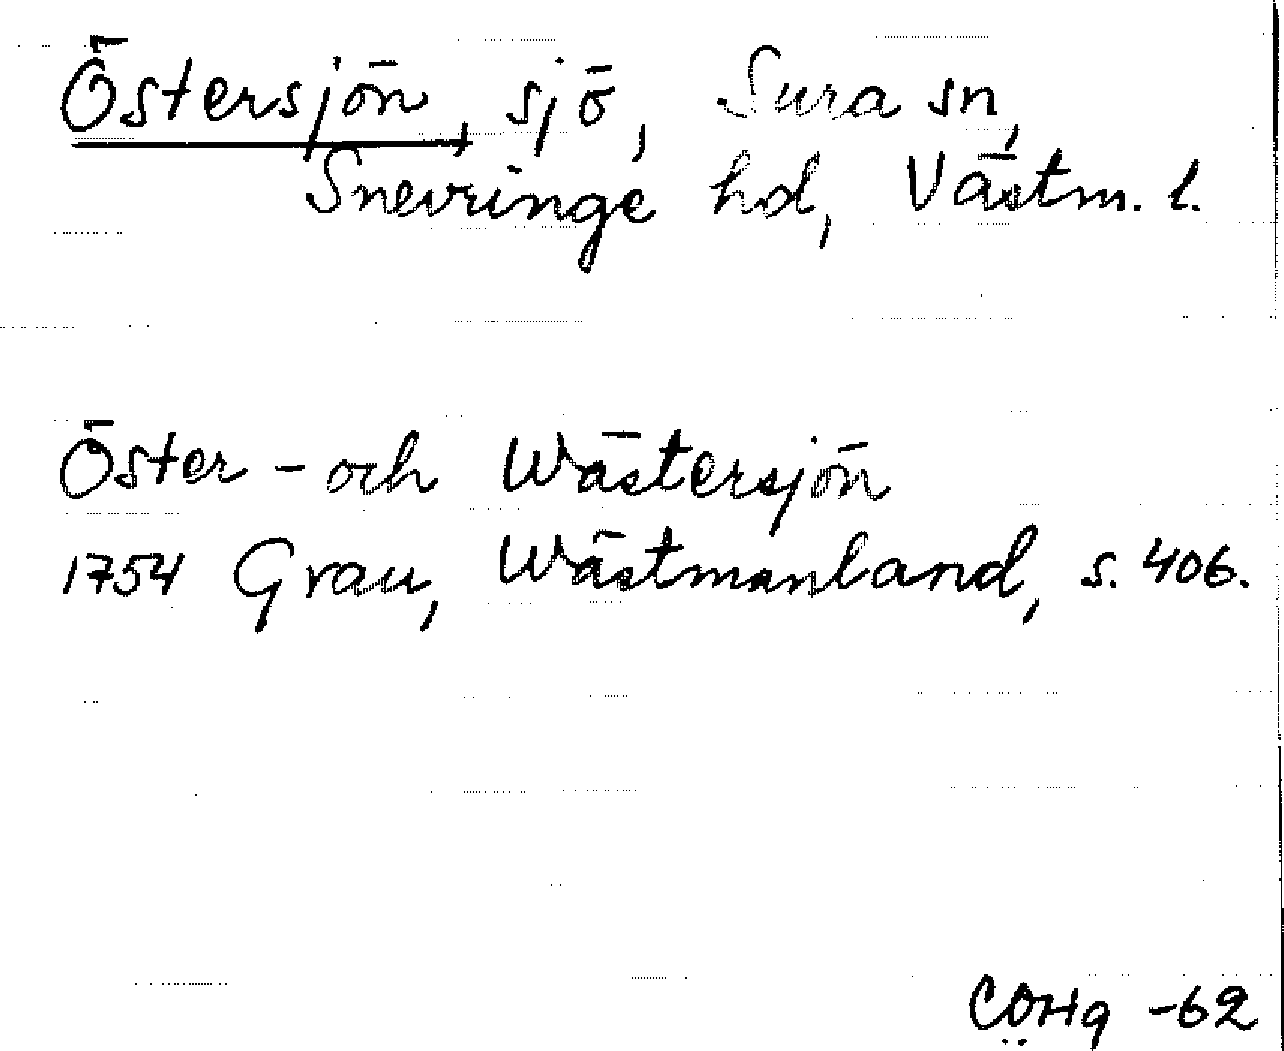 Östersjön, sjö, Sura sn,
Snevringe hd, Västm. l.
Öster- och Wästersjön
1754 Grau, Wästmanland, s. 406.
CÖHg -62